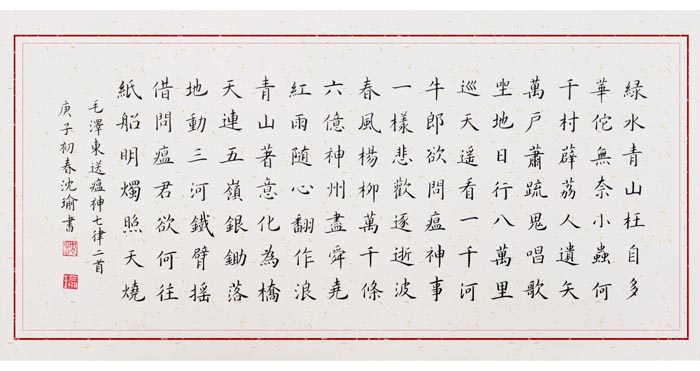 綠水青山枉自多
華佗無奈小蟲何
千村薜荔人遺矢
萬戶蕭疏鬼唱歌
坐地日行八萬里
巡天遥看一千河
牛郎欲問瘟神事
一樣悲歡逐逝波
春風楊柳萬千條
六億神州盡舜堯
紅雨隨心翻作浪
青山著意化為橋
天連五嶺銀鋤落
地動三河鐵臂摇
借問瘟君欲何往
紙船明燭照天燒
毛澤東送瘟神七律二首
庚子初春沈瑜書